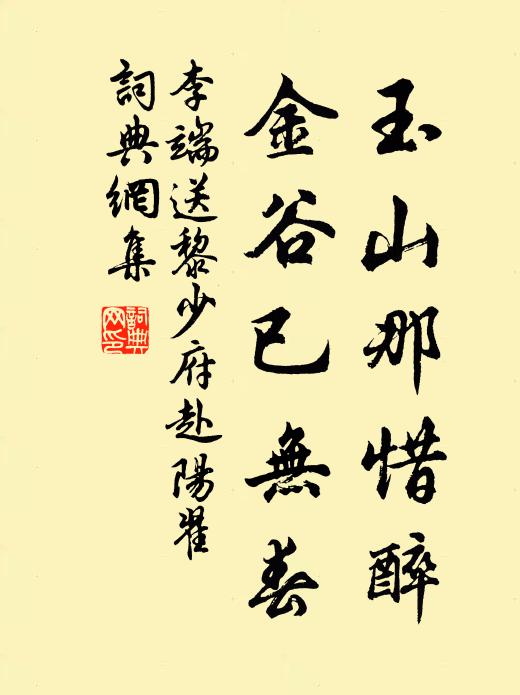 玉山那惜醉
金谷已無春
李端送黎少府赴陽翟
詞典網集
詞典
网印